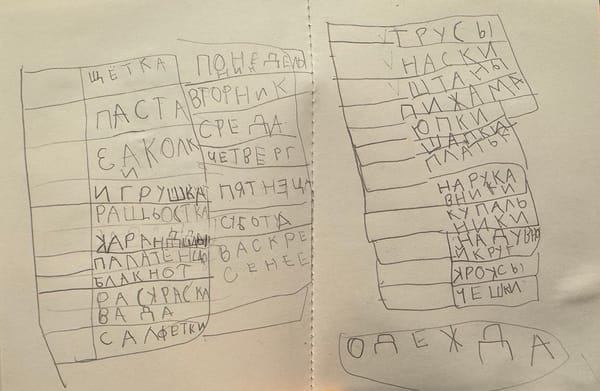 ЩЁТКА
ПАСТА
ЗАКОЛК
Й
ИГРУШКА
РАЩЬОСТКА
КАРАНДДШЫ
ПАЛАТЕНЦО
БЛАКНОТ
РАСКРАСКА
ВАДА
САЛФЕТКИ
ПОНЕДЕЛЬ
НИК
ВТОРНИК
СРЕДА
ЧЕТВЕРГ
ПЯТНЕЦА
СУБОТА
ВАСКРЕ
СЕНЕЕ
ТРУСЫ
НАСКИ
ШТАНЫ
ПИХАМА
ЮПКИ
ШАПКА
ПЛАТЬЕ
НАРУКА
ВНИКИ
КУПАЛЬ
НИКИ
НАДУВНА
Й КРУГ
КРОКСЫ
ЧЕШКИ
ОДЕЖДА